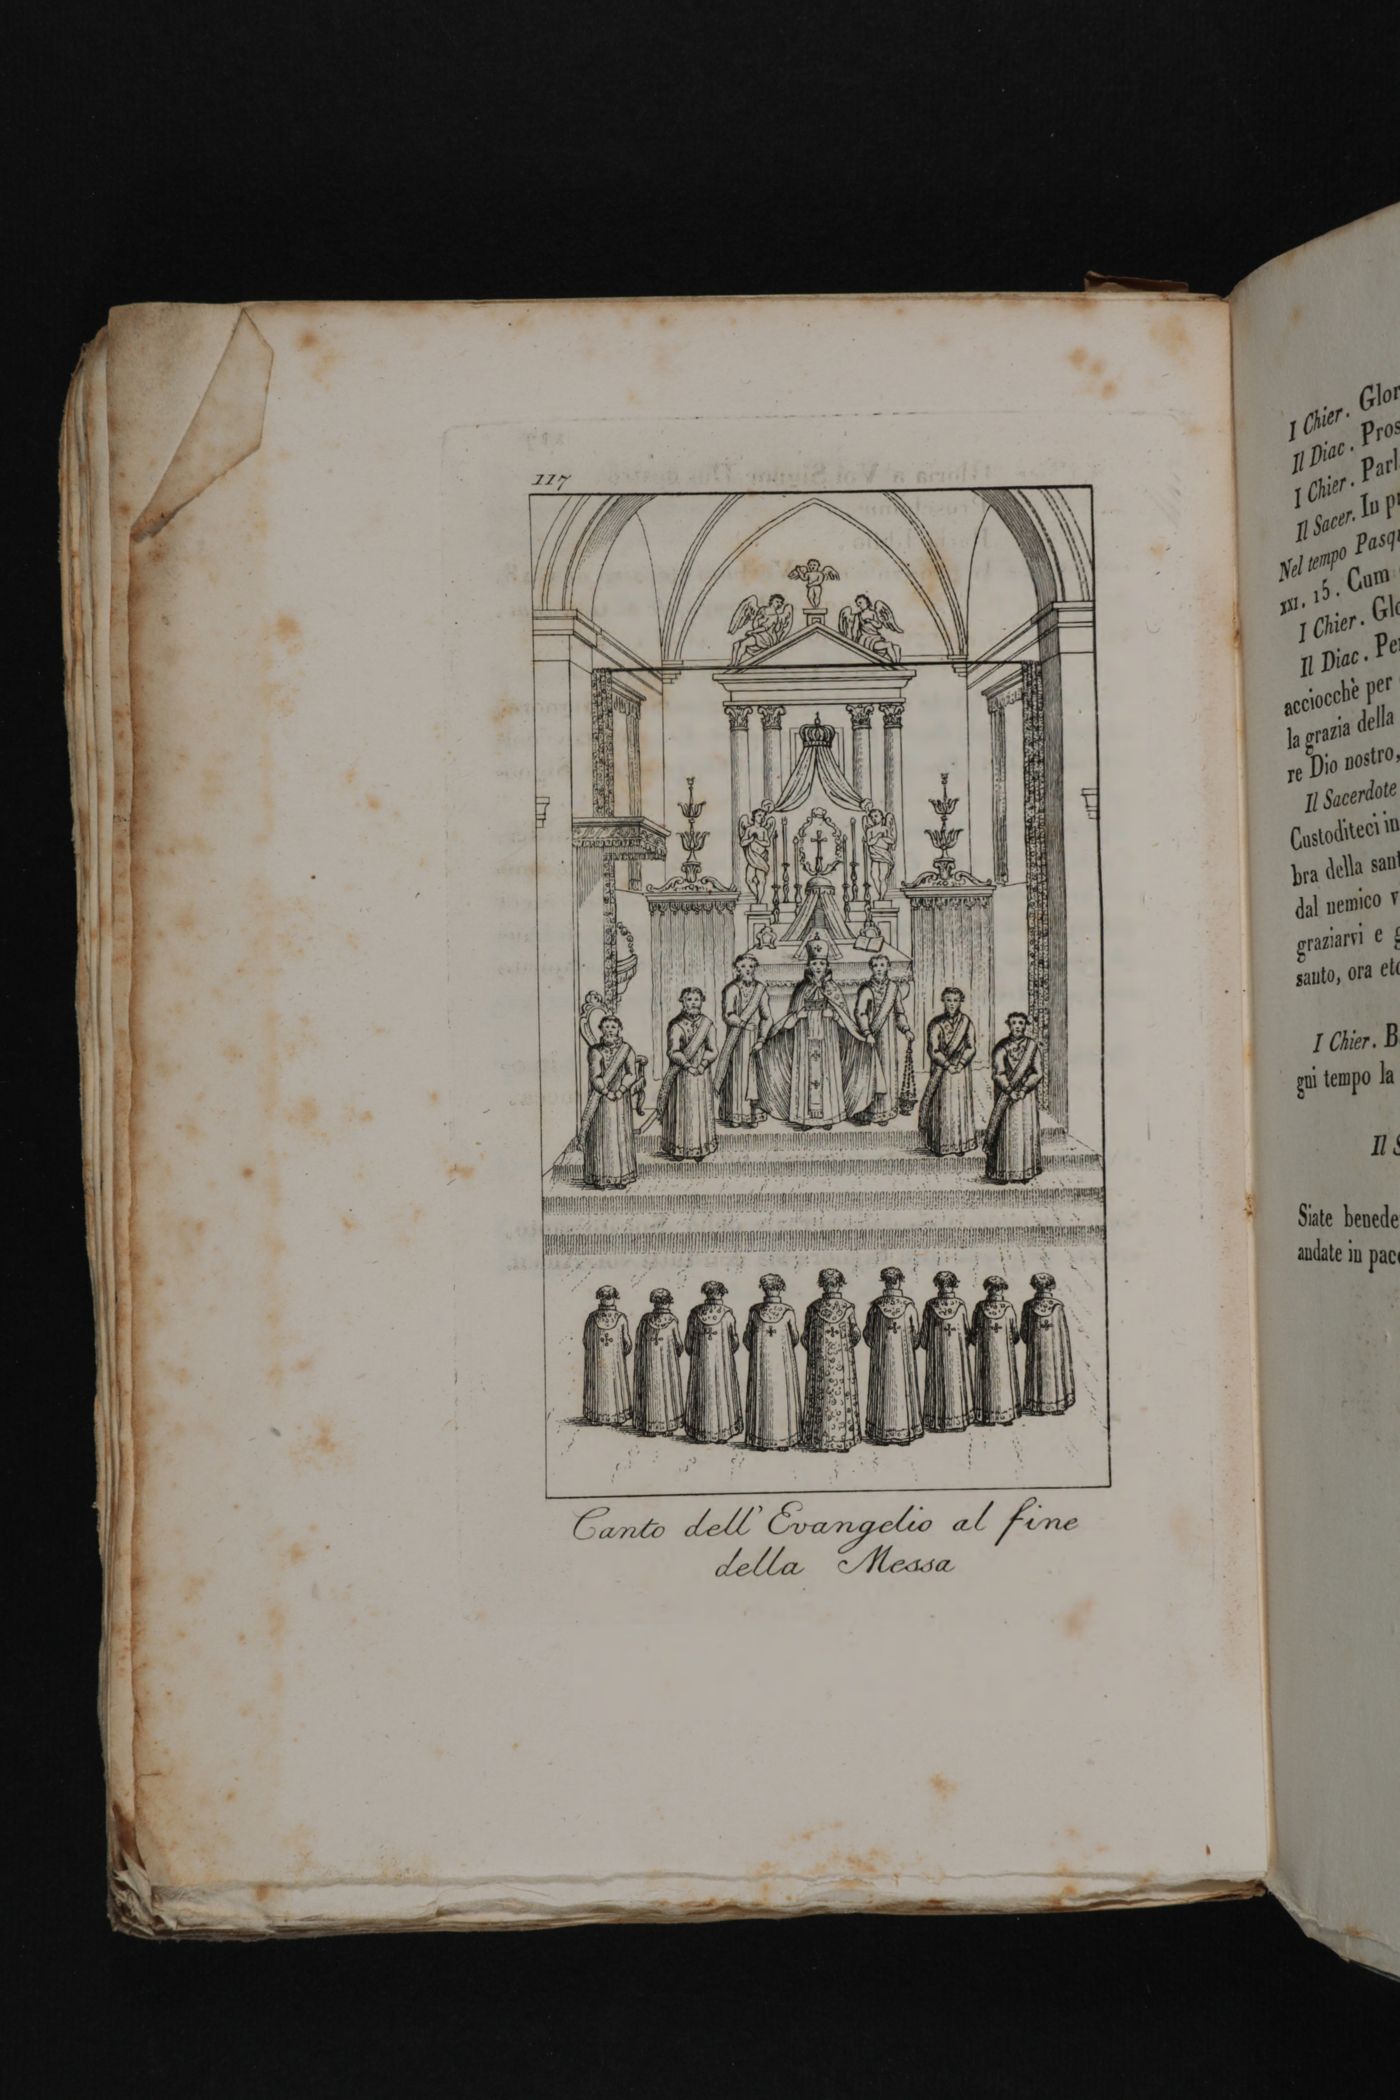 117
Canto dell' Evangelio al fine
della Messa
I Chier. Glor
Il Diac. Pros
I Chier. Parl
Il Sacer. In pr
Nel tempo Pasqu
XXI. 15. Cum
I Chier. Glo
Il Diac. Per
acciocchè per
la grazia della
re Dio nostro,
Il Sacerdote
Custoditeci in
bra della sant
dal nemico v
graziarvi e g
santo, ora etc
I Chier. B
gni tempo la
Il S
Siate benede
andate in pace